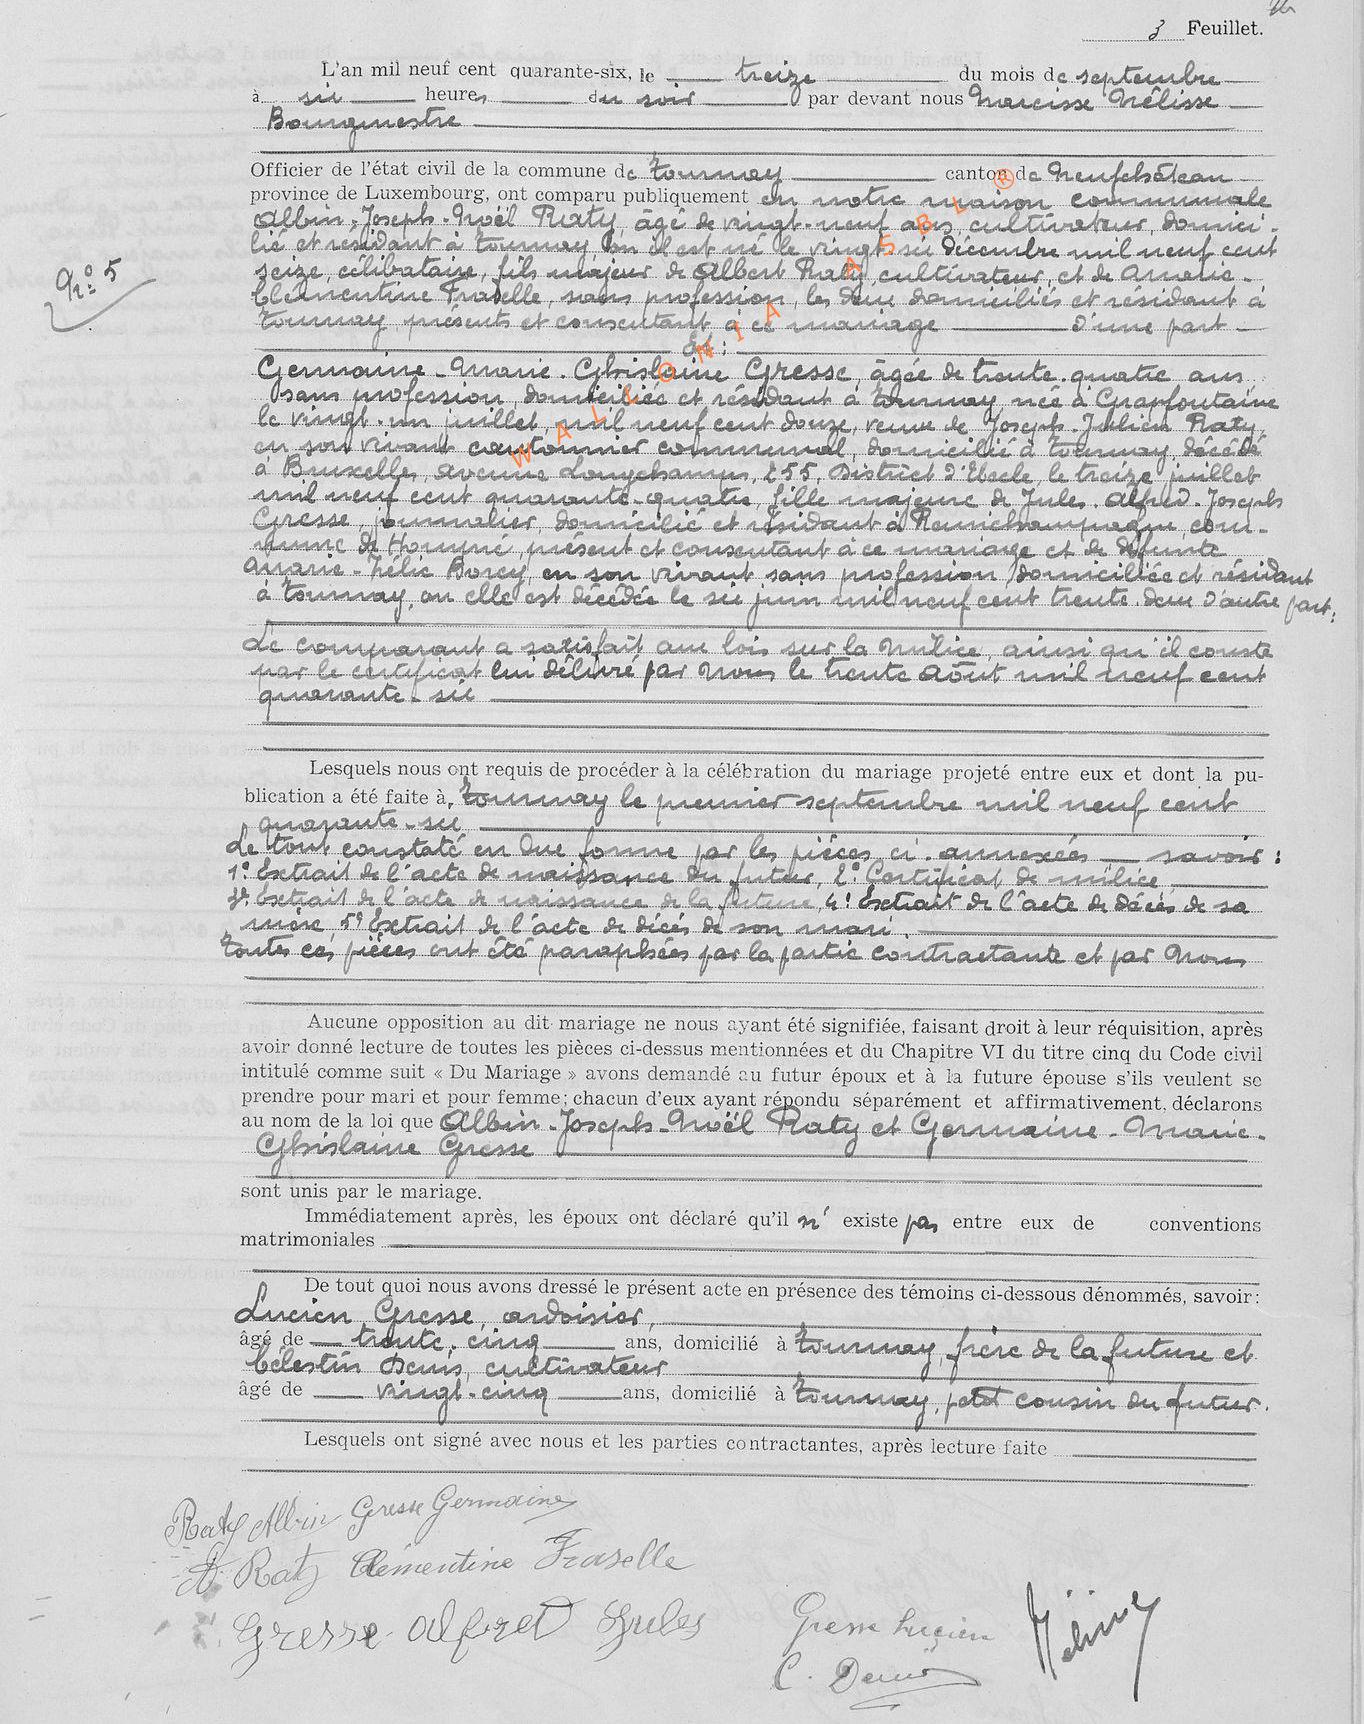 3 Feuillet.
L'an mil neuf cent quarante-six, le treize du mois de septembre
à six heures du soir par devant nous Narcisse Nélisse
Bourgmestre
Officier de l'état civil de la commune de Tournay canton de Neufchâteau
province de Luxembourg, ont comparu publiquement en notre maison communale
Albin-Joseph-Noël Raty, âgé de vingt-neuf ans, cultivateur, domici-
lié et résidant à Tournay, où il est né le vingt-six décembre mil neuf cent
seize, célibataire, fils majeur de Albert Raty, cultivateur, et de Amérie-
Clémentine Fraselle, sans profession, les deux domiciliés et résidant à
Tournay présents et consentant à ce mariage d'une part
Et :
N° 5
Germaine-Marie-Ghislaine Gresse, âgée de trente-quatre ans,
sans profession, domiciliée et résidant à Tournay née à Grapfontaine
le vingt-un juillet, mil neuf cent douze, veuve de Joseph-Julien Raty,
en son vivant cantonnier communal, domicilié à Tournay, décédé
à Bruxelles, avenue Longchamps, 255, District d'Uccle, le treize juillet
mil neuf cent quarante-quatre, fille majeure de Jules-Alfred-Joseph
Gresse, journalier, domicilié et résidant à Remichampagne, com-
mune de Hompré, présent et consentant à ce mariage et de défunte
Marie-Zélie Borcy, en son vivant sans profession, domiciliée et résidant
à Tournay, où elle est décédée le six juin mil neuf cent trente-deux d'autre part:
Le comparant a satisfait aux lois sur la milice, ainsi qu'il conste
par le certificat lui délivré par nous le trente août mil neuf cent
quarante-six
Lesquels nous ont requis de procéder à la célébration du mariage projeté entre eux et dont la pu-
blication a été faite à, Tournay le premier septembre mil neuf cent
quarante-six
Le tout constaté en due forme par les pièces ci-annexées savoir :
1° Extrait de l'acte de naissance du futur, 2° Certificat de milice,
3° Extrait de l'acte de naissance de la future, 4° Extrait de l'acte de décès de sa
mère, 5° Extrait de l'acte de décès de son mari.
Toutes ces pièces ont été paraphées par la partie contractante et par Nous
Aucune opposition au dit mariage ne nous ayant été signifiée, faisant droit à leur réquisition, après
avoir donné lecture de toutes les pièces ci-dessus mentionnées et du Chapitre VI du titre cinq du Code civil
intitulé comme suit « Du Mariage » avons demandé au futur époux et à la future épouse s'ils veulent se
prendre pour mari et pour femme; chacun d'eux ayant répondu séparément et affirmativement, déclarons
au nom de la loi que Albin-Joseph-Noël Raty et Germaine-Marie-
Ghislaine Gresse
sont unis par le mariage.
Immédiatement après, les époux ont déclaré qu'il n' existe pas entre eux de conventions
matrimoniales
De tout quoi nous avons dressé le présent acte en présence des témoins ci-dessous dénommés, savoir:
Lucien Gresse, ardoisier,
âgé de trente-cinq ans, domicilié à Tournay, frère de la future et
Célestin Denis, cultivateur
âgé de vingt-cinq ans, domicilié à Tournay, petit cousin du futur.
Lesquels ont signé avec nous et les parties contractantes, après lecture faite
Raty Albin Gresse Germaine
A Raty Clémentine Fraselle
Gresse Alfred Jules Gresse Lucien
C. Denis
WALLONIA ASBL ®